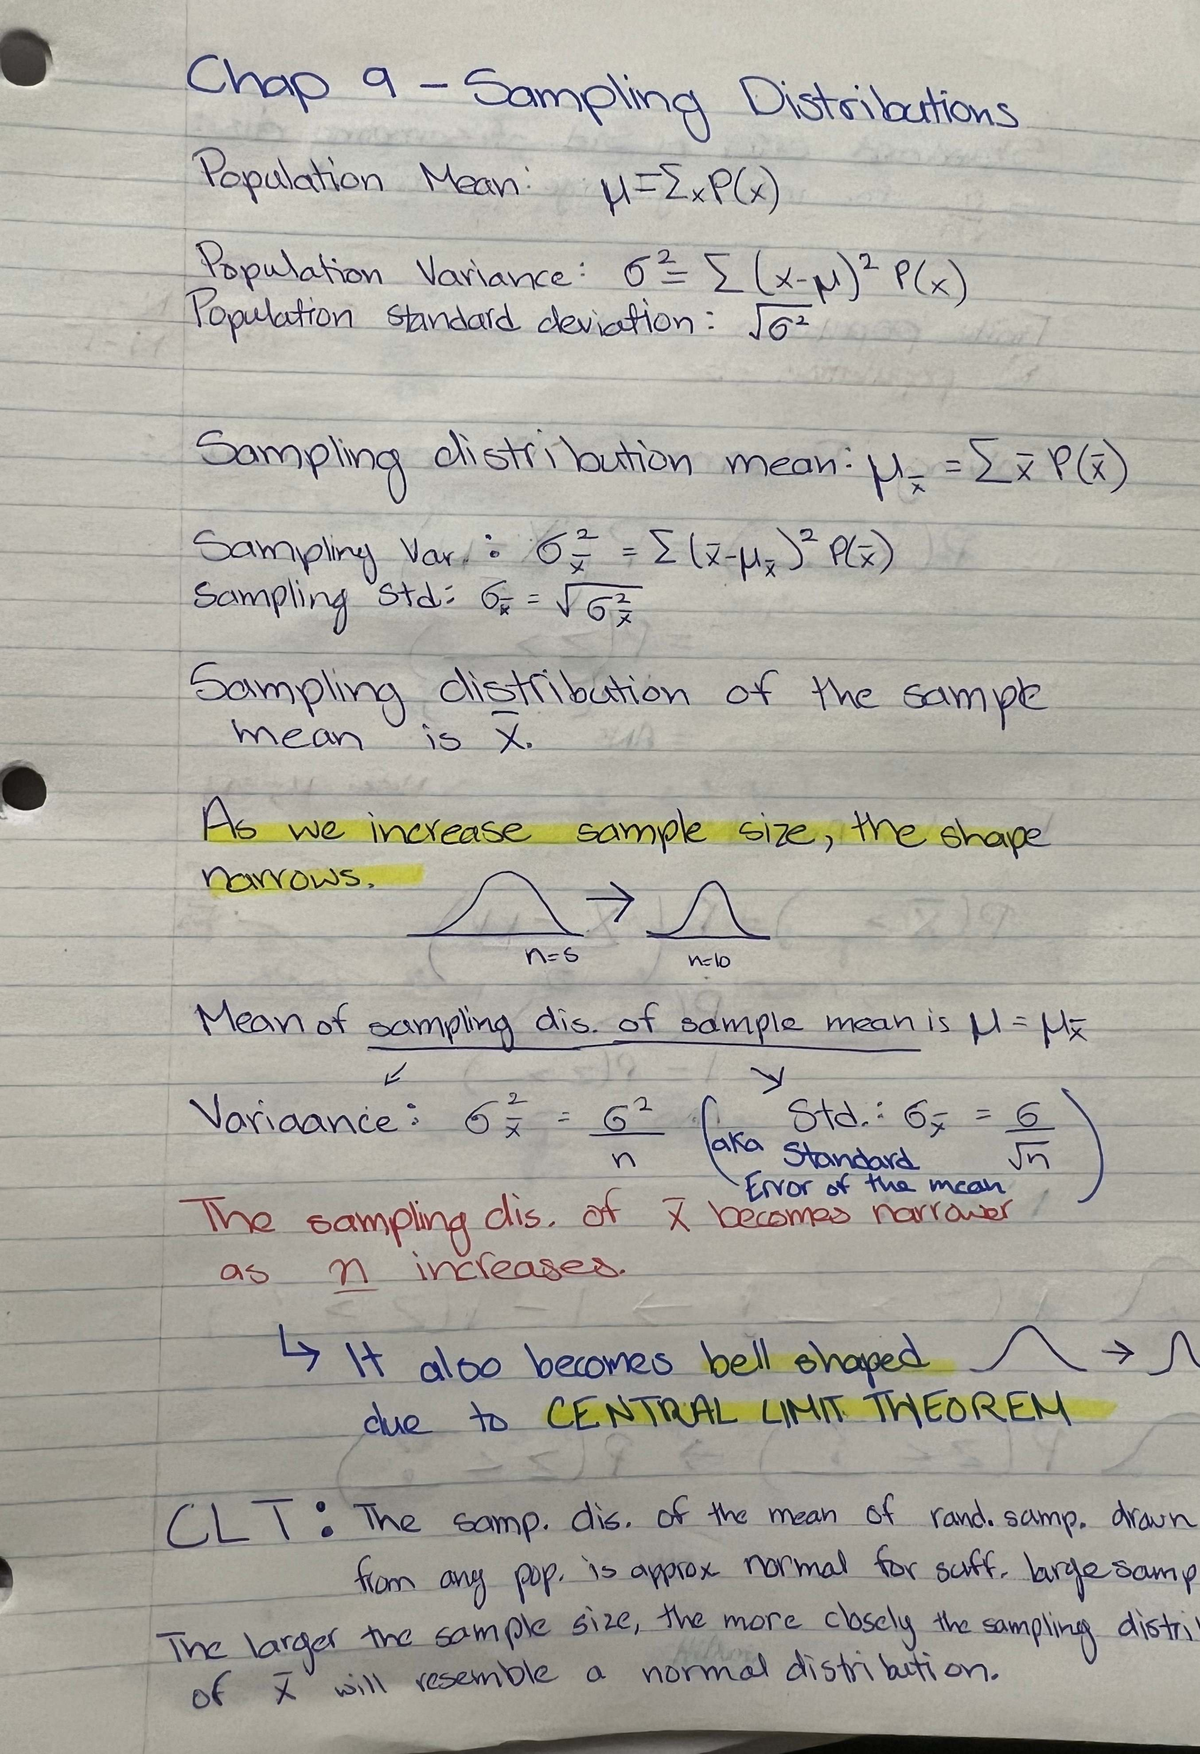 Chap 9 - Sampling Distributions
Population Mean: μ=Σ x P(x)
Population Variance: σ² = Σ (x-μ)² P(x)
Population standard deviation: √σ²
Sampling distribution mean: μx̄ = Σ x̄ P(x̄)
Sampling Var. : σ²x̄ = Σ (x̄-μx̄)² P(x̄)
Sampling Std: σx̄ = √σ²x̄
Sampling distribution of the sample
mean is x̄.
As we increase sample size, the shape
narrows.
→
n=5 n=10
Mean of sampling dis. of sample mean is μ = μx̄
Variaance: σ²x̄ = σ²/n ( Std.: σx̄ = σ/√n )
aka Standard
Error of the mean
The sampling dis. of x̄ becomes narrower
as n increases.
↳ It also becomes bell shaped →
due to CENTRAL LIMIT THEOREM
CLT: The samp. dis. of the mean of rand. samp. drawn
from any pop. is approx normal for suff. large samp
The larger the sample size, the more closely the sampling distri
of x̄ will resemble a normal distribution.